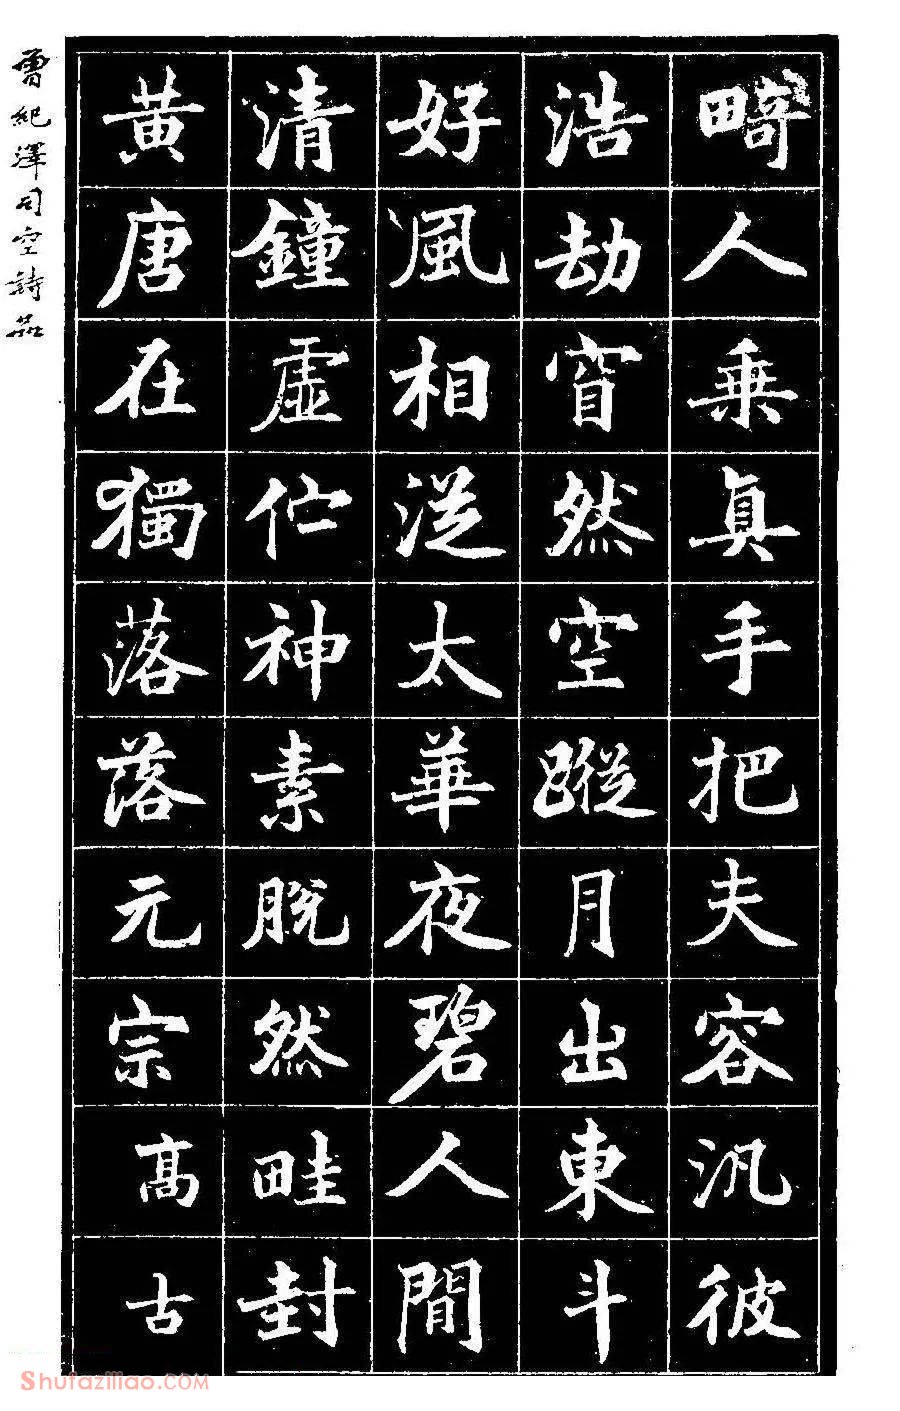 畸人乗真手把夫容汎彼
浩劫窅然空蹤月出東斗
好風相從太華夜碧人間
清鐘虛佇神素脫然畦封
黃唐在獨落落元宗高古
曾紀澤司空詩品
Shufaziliao.COM